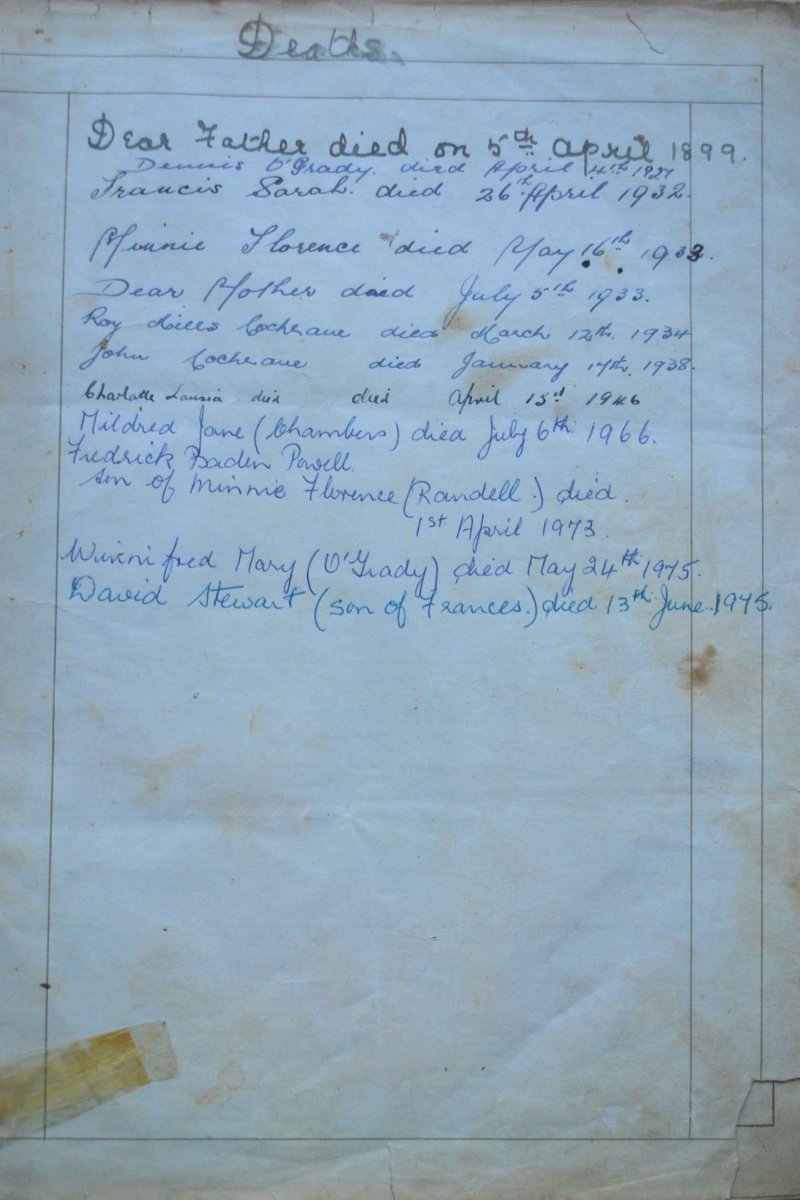 Deaths.
Dear Father died on 5th April 1899.
Dennis O'Grady. died April 4th 1927
Francis Sarah. died 26th April 1932.
Minnie Florence died May 16th 1933.
Dear Mother died July 5th 1933.
Roy Mills Cochrane died March 12th. 1934
John Cochrane died January 17th. 1938.
Charlotte died died April 1946
Mildred Jane (Chambers) died July 6th 1966.
Fredrick Baden Powell.
son of Minnie Florence (Randell.) died.
1st April 1973.
Winnifred Mary (O'Grady) died May 24th 1975.
David Stewart (son of Frances.) died 13th June. 1975.